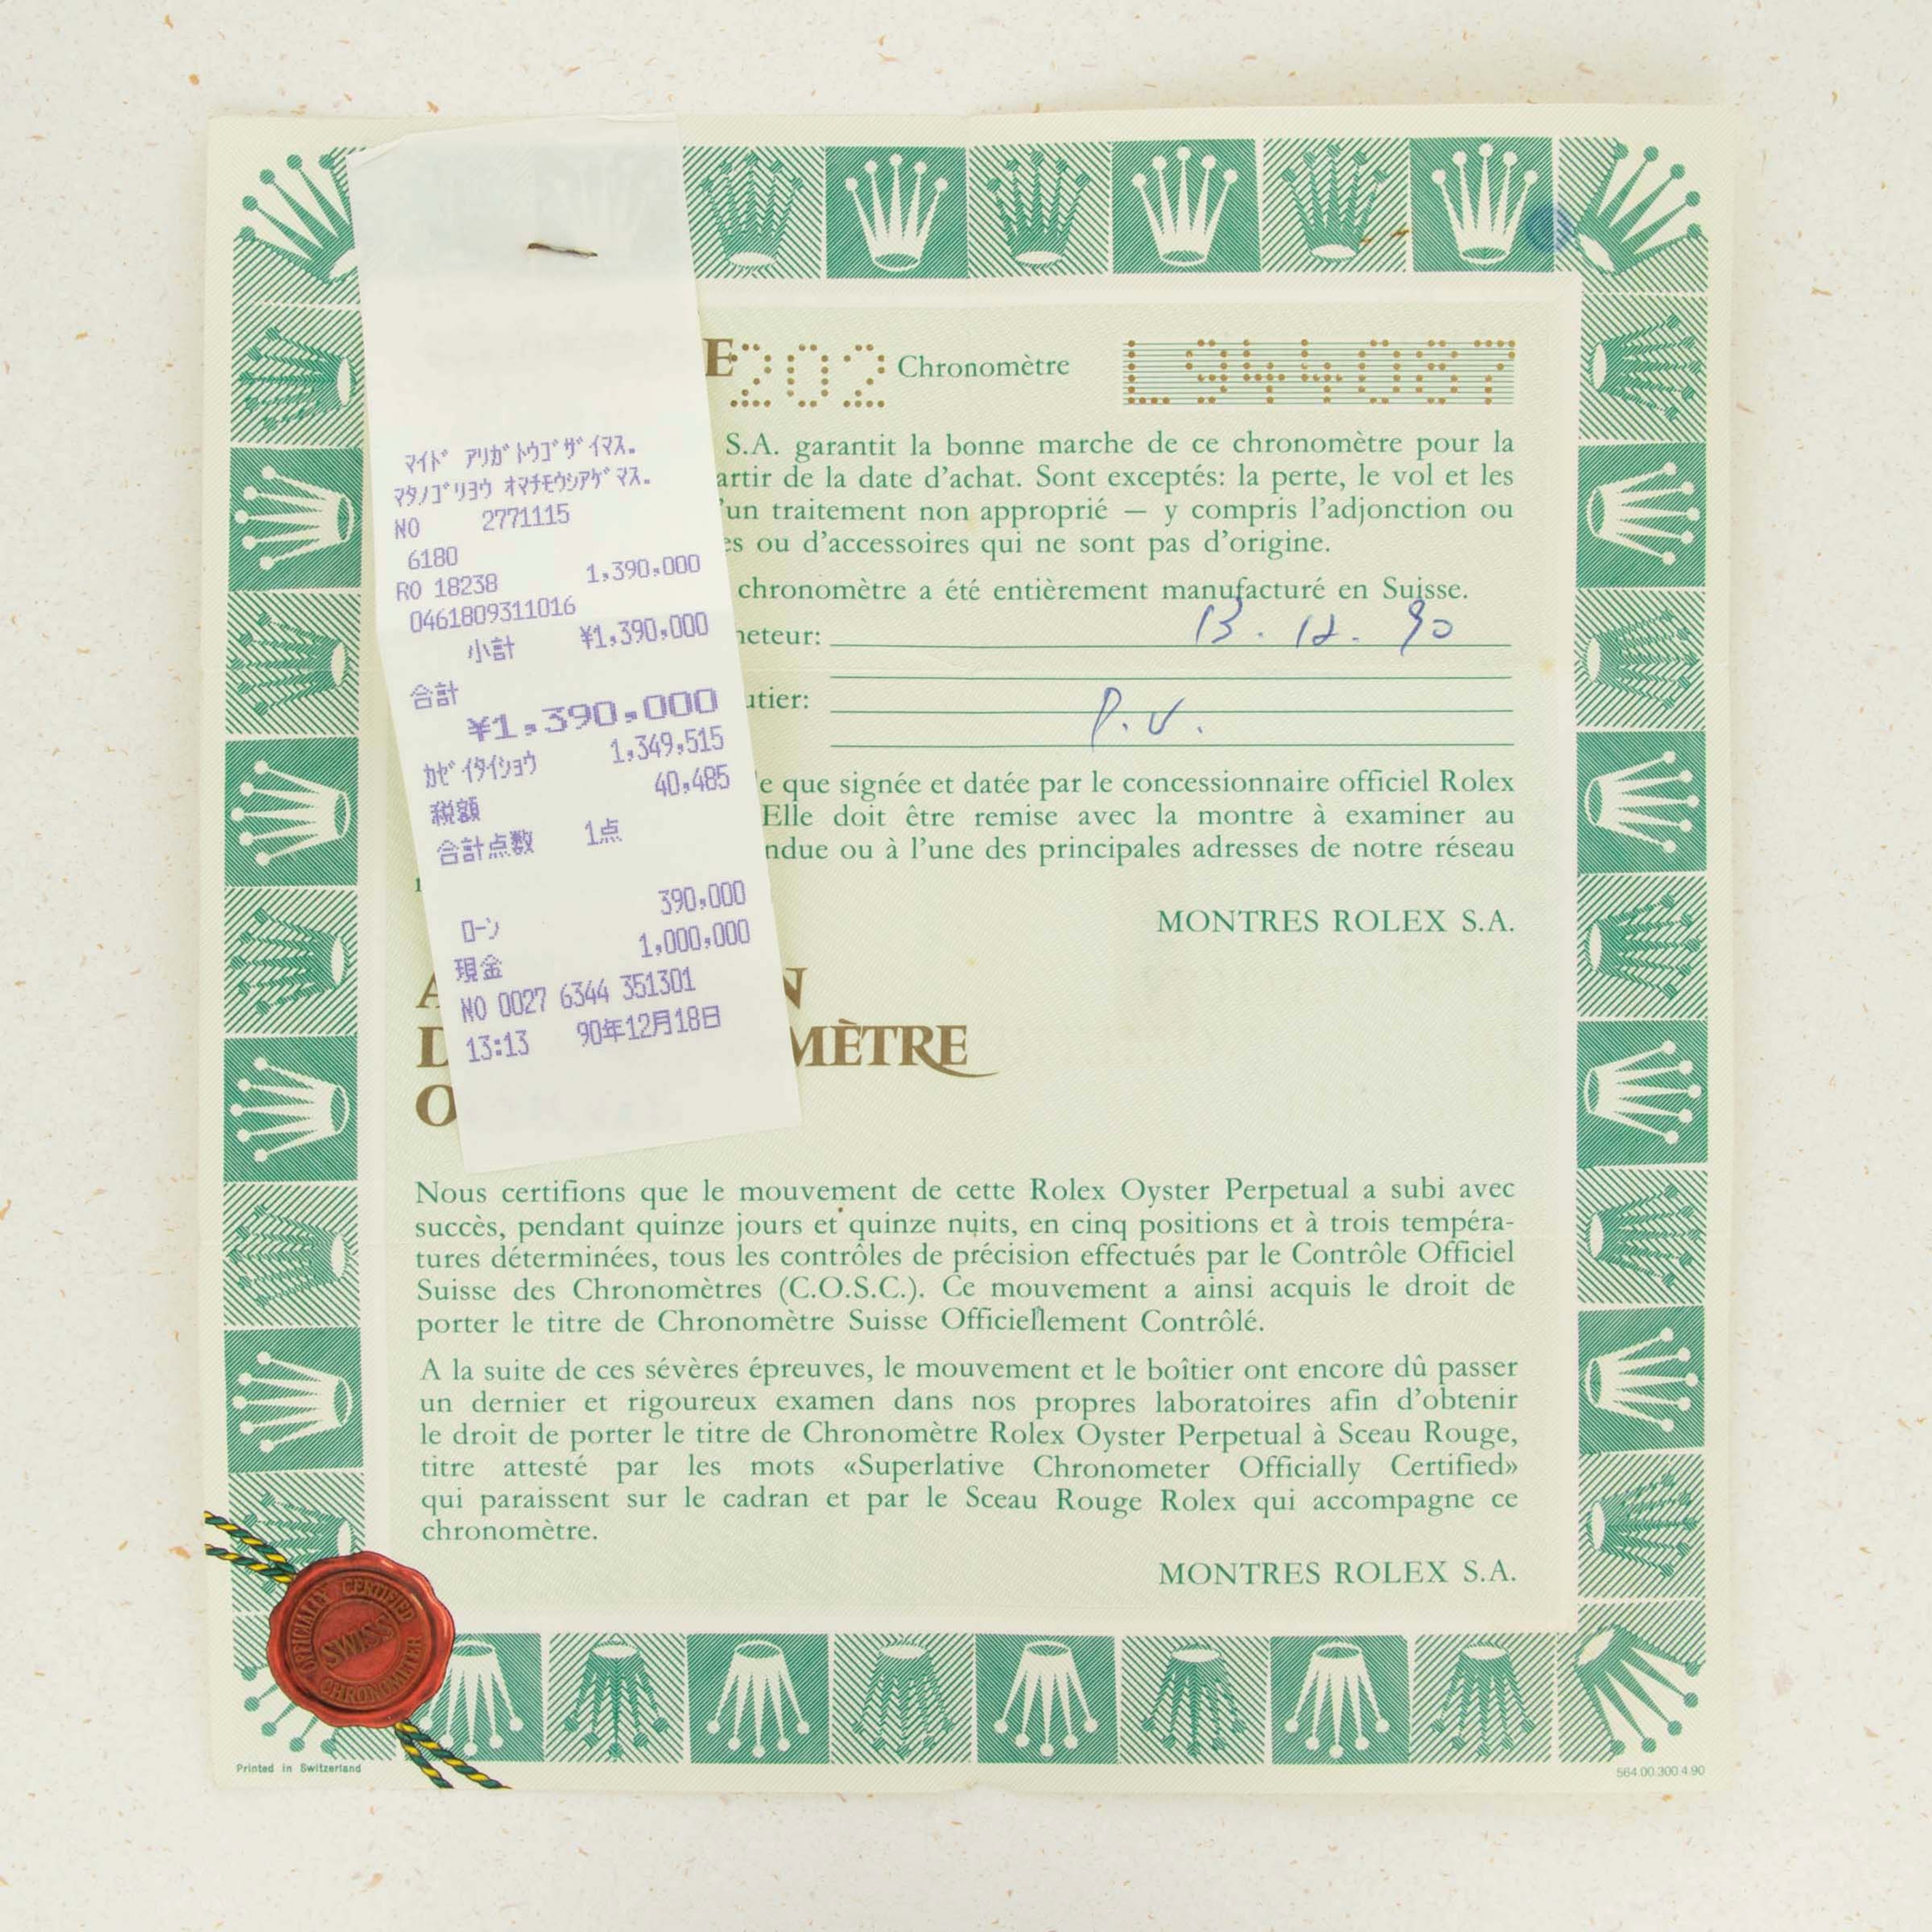 マイド アリガトウゴザイマス.
マタノゴリヨウ オマチモウシアゲマス.
NO 2771115
6180
RO 18238 1,390,000
0461809311016
小計 ¥1,390,000
合計
¥1,390,000
カゼイタイショウ 1,349,515
税額 40,485
合計点数 1点
ローン 390,000
現金 1,000,000
NO 0027 6344 351301
13:13 90年12月18日
E 202 Chronomètre L944087
S.A. garantit la bonne marche de ce chronomètre pour la
artir de la date d'achat. Sont exceptés: la perte, le vol et les
'un traitement non approprié — y compris l'adjonction ou
es ou d'accessoires qui ne sont pas d'origine.
chronomètre a été entièrement manufacturé en Suisse.
heteur: 13. 12. 90
utier: P.V.
e que signée et datée par le concessionnaire officiel Rolex
Elle doit être remise avec la montre à examiner au
ndue ou à l'une des principales adresses de notre réseau
MONTRES ROLEX S.A.
A N
D MÈTRE
O
Nous certifions que le mouvement de cette Rolex Oyster Perpetual a subi avec
succès, pendant quinze jours et quinze nuits, en cinq positions et à trois tempéra-
tures déterminées, tous les contrôles de précision effectués par le Contrôle Officiel
Suisse des Chronomètres (C.O.S.C.). Ce mouvement a ainsi acquis le droit de
porter le titre de Chronomètre Suisse Officiellement Contrôlé.
A la suite de ces sévères épreuves, le mouvement et le boîtier ont encore dû passer
un dernier et rigoureux examen dans nos propres laboratoires afin d'obtenir
le droit de porter le titre de Chronomètre Rolex Oyster Perpetual à Sceau Rouge,
titre attesté par les mots «Superlative Chronometer Officially Certified»
qui paraissent sur le cadran et par le Sceau Rouge Rolex qui accompagne ce
chronomètre.
MONTRES ROLEX S.A.
OFFICIALLY CERTIFIED
SWISS
CHRONOMETER
Printed in Switzerland
564.00.300.4.90